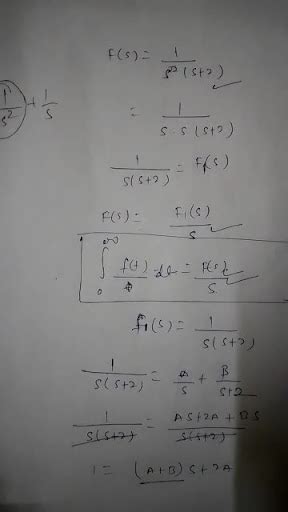 F(s) = 1/s²(s+2)
1/s² + 1/s
= 1/s·s(s+2)
1/s(s+2) = F1(s)
F(s) = F1(s)/s
∫₀^∞ f(t)/t dt = F(s)/s
f1(s) = 1/s(s+2)
1/s(s+2) = A/s + B/s+2
1/s(s+2) = AS+2A+BS/s(s+2)
1 = (A+B)s+2A